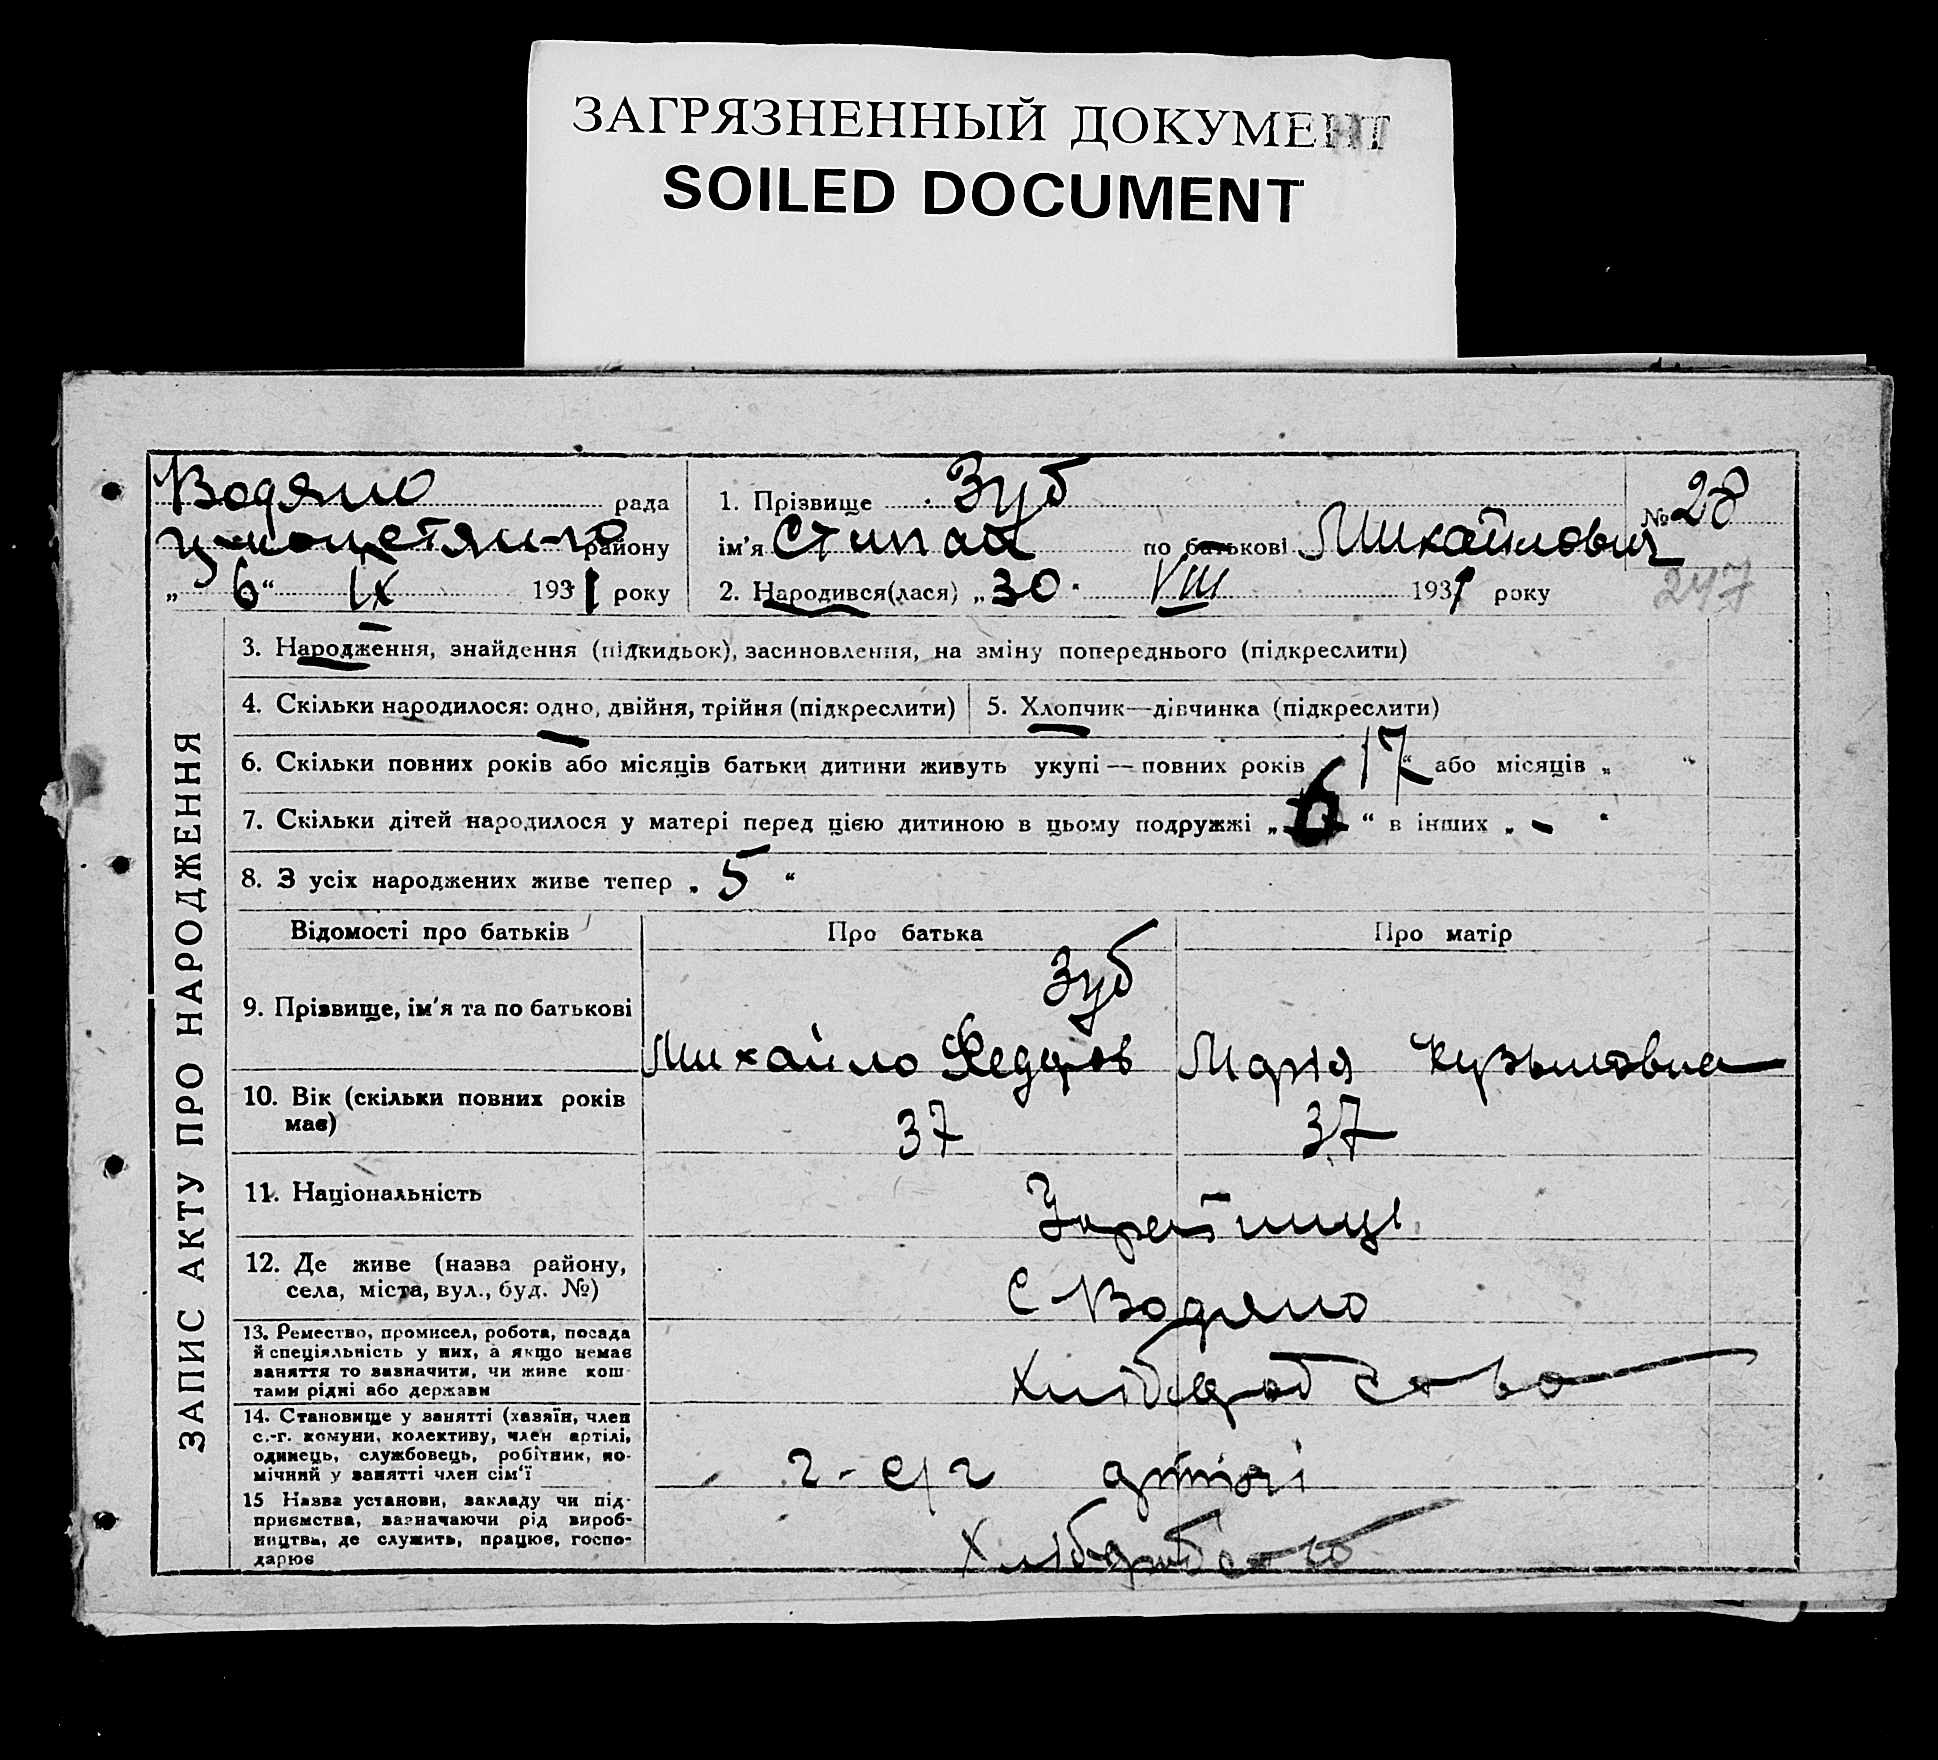 ЗАГРЯЗНЕННЫЙ ДОКУМЕНТ
SOILED DOCUMENT
Водяно рада
району
„ 6 “ IX 1931 року
1. Прізвище Зуб
ім'я Стипан по батькові Михайлович
2. Народився(лася) „ 30 VIII 1931 року
№ 28
247
ЗАПИС АКТУ ПРО НАРОДЖЕННЯ
3. Народження, знайдення (підкидьок), засиновлення, на зміну попереднього (підкреслити)
4. Скільки народилося: одно, двійня, трійня (підкреслити) 5. Хлопчик—дівчинка (підкреслити)
6. Скільки повних років або місяців батьки дитини живуть укупі — повних років 17 “ або місяців „ “
7. Скільки дітей народилося у матері перед цією дитиною в цьому подружжі „ 6 “ в інших „ - “
8. З усіх народжених живе тепер „ 5 “
Відомості про батьків Про батька Про матір
9. Прізвище, ім'я та по батькові Зуб
Михайло Федоров Марія Кузьмовна
10. Вік (скільки повних років має) 37 37
11. Національність
12. Де живе (назва району, села, міста, вул., буд. №) с Водяно
13. Ремество, промисел, робота, посада
й спеціяльність у них, а якщо немає
заняття то зазначити, чи живе кош-
тами рідні або держави
Хліборобство
14. Становище у занятті (хазяїн, член
с.-г. комуни, колективу, член артілі,
одинець, службовець, робітник, по-
мічний у занятті член сім'ї
г - с/г артілі
15 Назва установи, закладу чи під-
приємства, зазначаючи рід вироб-
ництва, де служить, працює, госпо-
дарює
Хліборобство